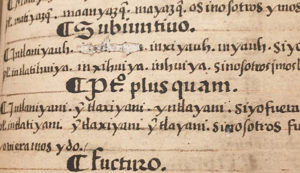 pl. matiyazq̃. maanyazq̃. mayazq̃. osinosotros ymos
¶ Subiuntiuo.
¶ Intlaniyauh. inxiyauh. inyauh. siyo
pl. intlatihuiya. inxihuiya. inhuiya. sinosotros
¶ Pto plus quam.
¶ Intlaniyani. ỹtlaxiyani. yntlayani. siyofuera
pl. intlatiyani. ỹtlaxiyani. ỹtlayani. sinosotros fu
ovieramos ydo.
¶ fucturo.